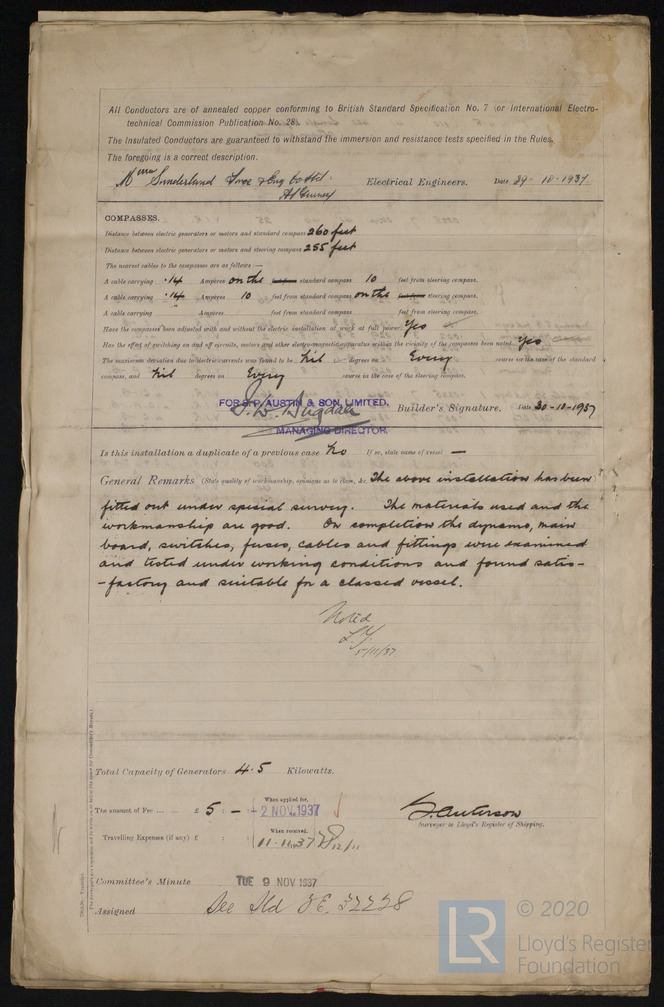 All Conductors are of annealed copper conforming to British Standard Specification No. 7 (or International Electro-
technical Commission Publication No. 28).
The Insulated Conductors are guaranteed to withstand the immersion and resistance tests specified in the Rules.
The foregoing is a correct description.
Sunderland Forge & Eng Co Ltd. Electrical Engineers. Date 29-10-1937
COMPASSES.
Distance between electric generators or motors and standard compass 260 feet
Distance between electric generators or motors and steering compass 255 feet
The nearest cables to the compasses are as follows:—
A cable carrying .14 Ampères on the feet from standard compass 10 feet from steering compass.
A cable carrying .14 Ampères 10 feet from standard compass on the feet from steering compass.
A cable carrying Ampères feet from standard compass feet from steering compass.
Have the compasses been adjusted with and without the electric installation at work at full power Yes
Has the effect of switching on and off circuits, motors and other electro-magnetic apparatus within the vicinity of the compasses been noted Yes
The maximum deviation due to electric currents was found to be Nil degrees on Every course in the case of the standard
compass, and Nil degrees on Every course in the case of the steering compass.
FOR S.P. AUSTIN & SON, LIMITED.
Builder's Signature. Date 30-10-1937
MANAGING DIRECTOR
Is this installation a duplicate of a previous case No If so, state name of vessel —
General Remarks (State quality of workmanship, opinions as to class, &c. The above installation has been
fitted out under special survey. The materials used and the
workmanship are good. On completion the dynamo, main
board, switches, fuses, cables and fittings were examined
and tested under working conditions and found satis-
-factory and suitable for a classed vessel.
Noted
5/11/37
Total Capacity of Generators 4.5 Kilowatts.
When applied for,
The amount of Fee ... £ 5 : — : 2 NOV 1937
Surveyor to Lloyd's Register of Shipping.
When received,
Travelling Expenses (if any) £ : : 11.11.1937
Committee's Minute TUE 9 NOV 1937
Assigned See F.E. 32228
LR
© 2020
Lloyd's Register
Foundation